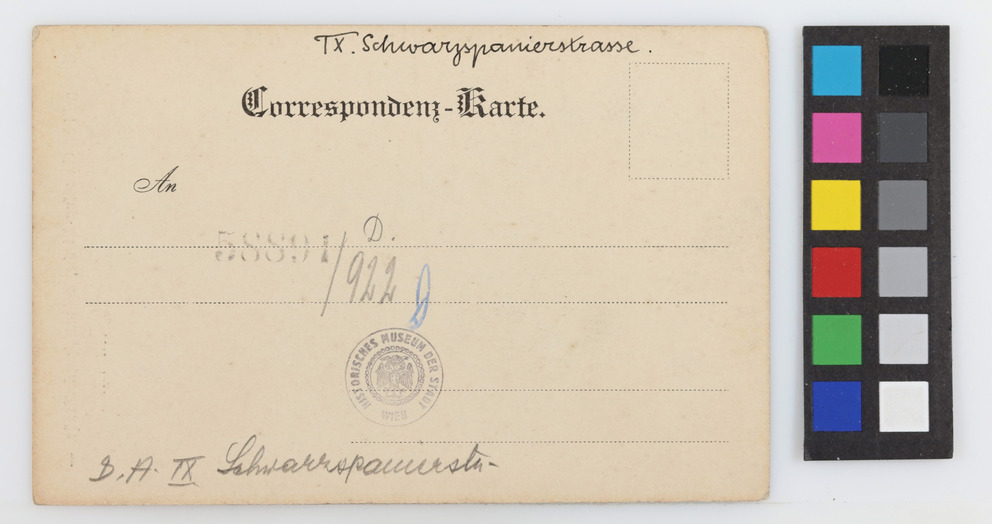 IX. Schwarzspanierstrasse.
Correspondenz-Karte.
An
D.
58891/922
HISTORISCHES MUSEUM DER STADT
WIEN
B.A. IX Schwarzspanierstr-